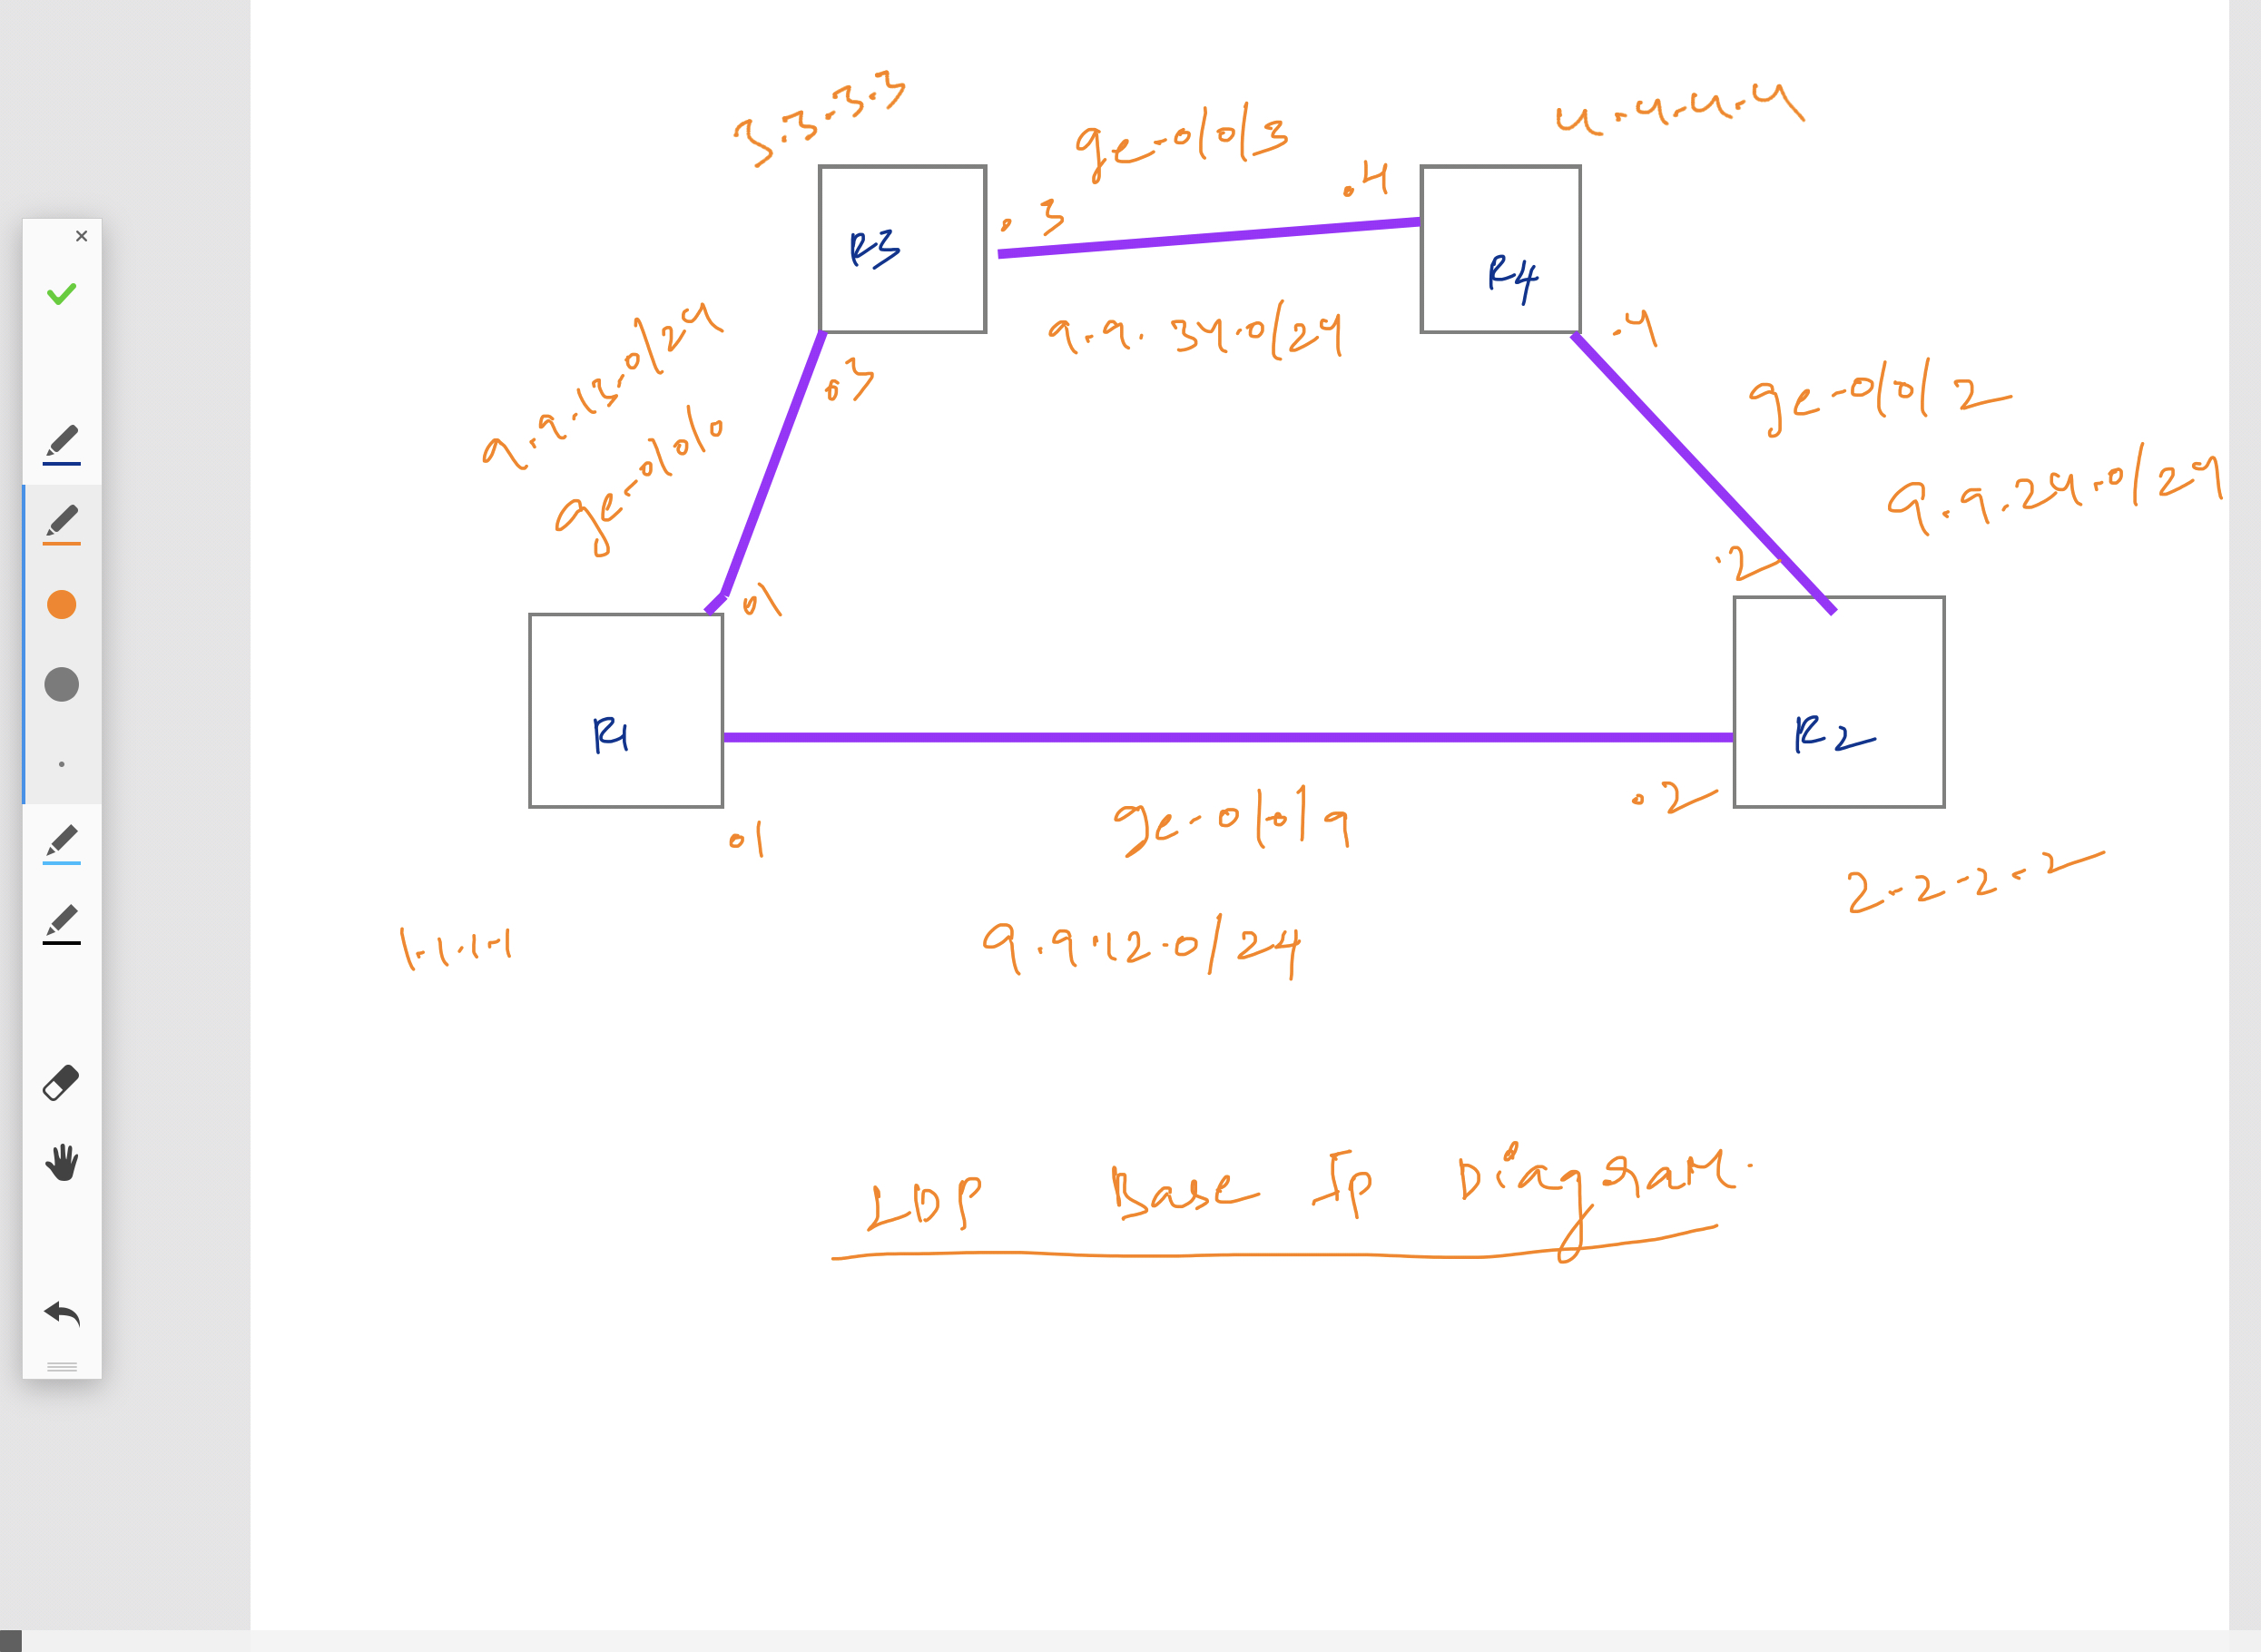 3.3.3.3
4.4.4.4
ge-0/0/3
.4
.3
R3
R4
9.9.34.0/24
.4
9.9.13.0/24
.3
ge-0/0/2
ge-0/0/0
9.9.24.0/24
.2
.1
R1
R2
ge-0/0/9
.2
.1
2.2.2.2
1.1.1.1
9.9.12.0/24
LDP Base Ip Diagram.